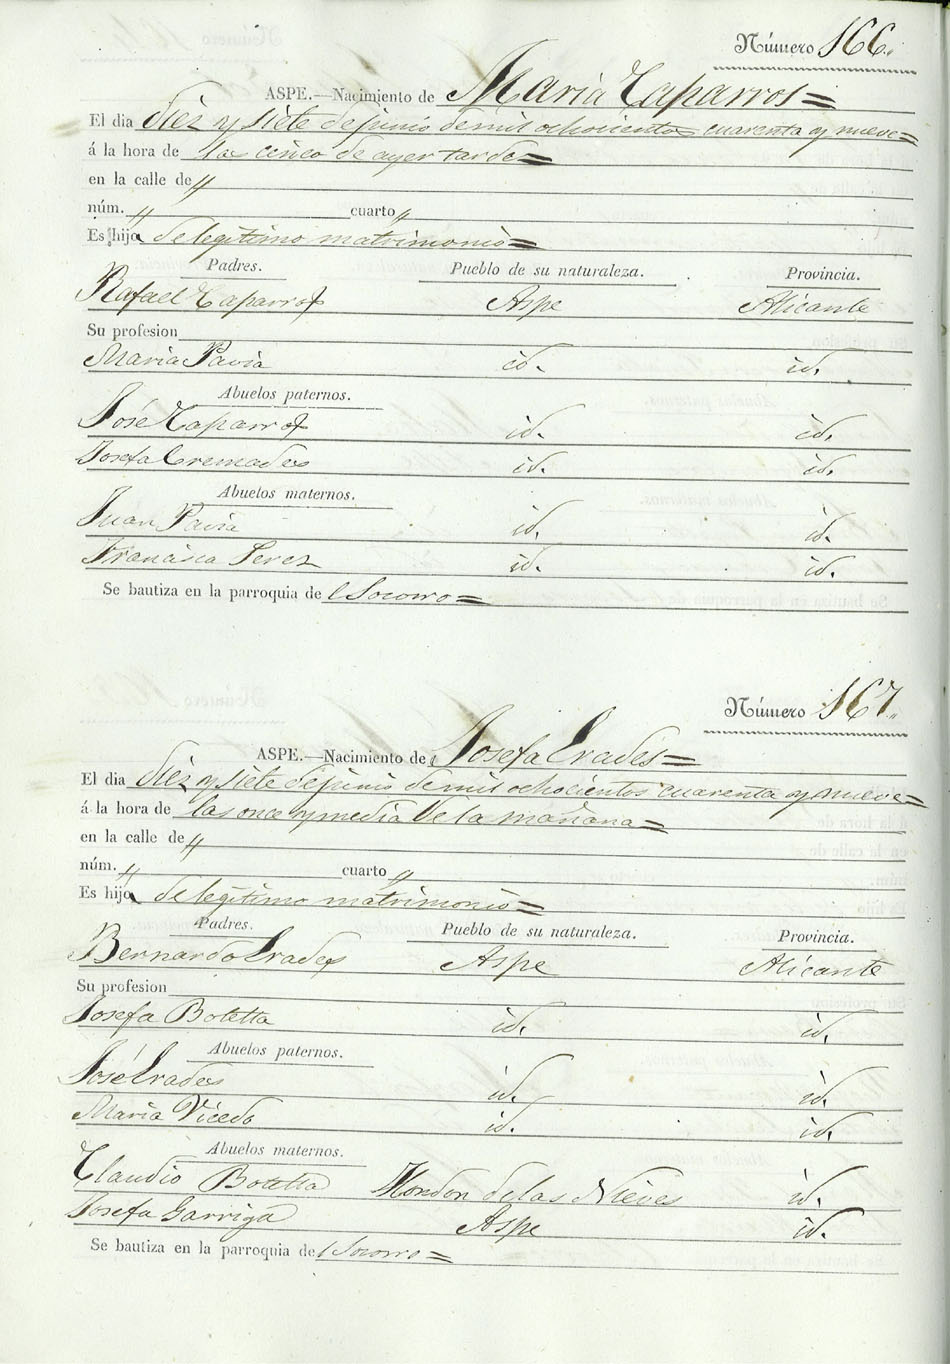 Número 166.
ASPE.—Nacimiento de Maria Caparros=
El dia diez y siete de junio de mil ochocientos cuarenta y nueve=
á la hora de las cinco de ayer tarde=
en la calle de "
núm. " cuarto "
Es hija de legitimo matrimonio=
Padres. Pueblo de su naturaleza. Provincia.
Rafael Caparros Aspe Alicante
Su profesion
Maria Pavia id. id.
Abuelos paternos.
José Caparros id. id.
Josefa Cremades id. id.
Abuelos maternos.
Juan Pavia id. id.
Francisca Perez id. id.
Se bautiza en la parroquia del Socorro=
Número 167.
ASPE.—Nacimiento de Josefa Erades=
El dia diez y siete de junio de mil ochocientos cuarenta y nueve=
á la hora de las once y media de la mañana=
en la calle de "
núm. " cuarto "
Es hija de legitimo matrimonio=
Padres. Pueblo de su naturaleza. Provincia.
Bernardo Erades Aspe Alicante
Su profesion
Josefa Botella id. id.
Abuelos paternos.
José Erades id. id.
Maria Vicedo id. id.
Abuelos maternos.
Claudio Botella Hondon de las Nieves id.
Josefa Garriga Aspe id.
Se bautiza en la parroquia del Socorro=